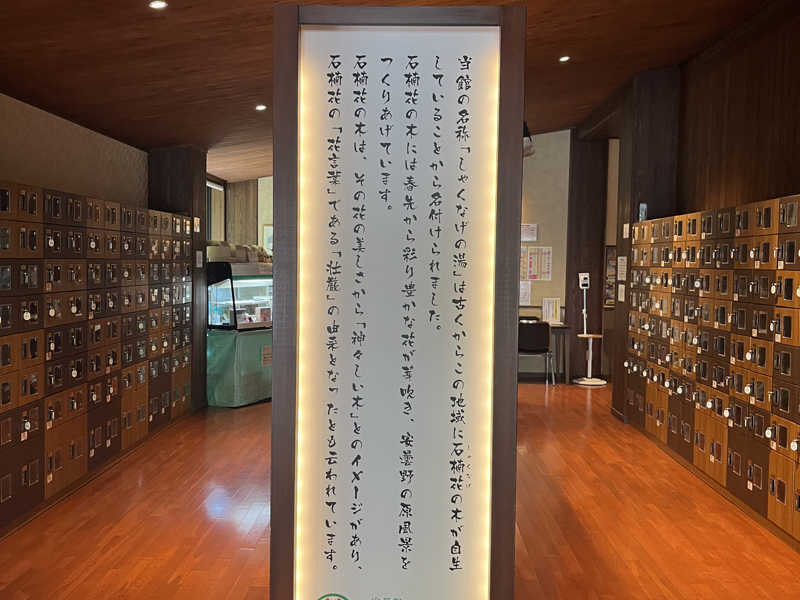 当館の名称「しゃくなげの湯」は古くからこの地域に石楠花の木が自生
しゃくなげ
していることから名付けられました。
石楠花の木には春先から彩り豊かな花が芽吹き、安曇野の原風景を
つくりあげています。
石楠花の木は、その花の美しさから「神々しい木」とのイメージがあり、
石楠花の「花言葉」である「荘厳」の由来となったとも云われています。